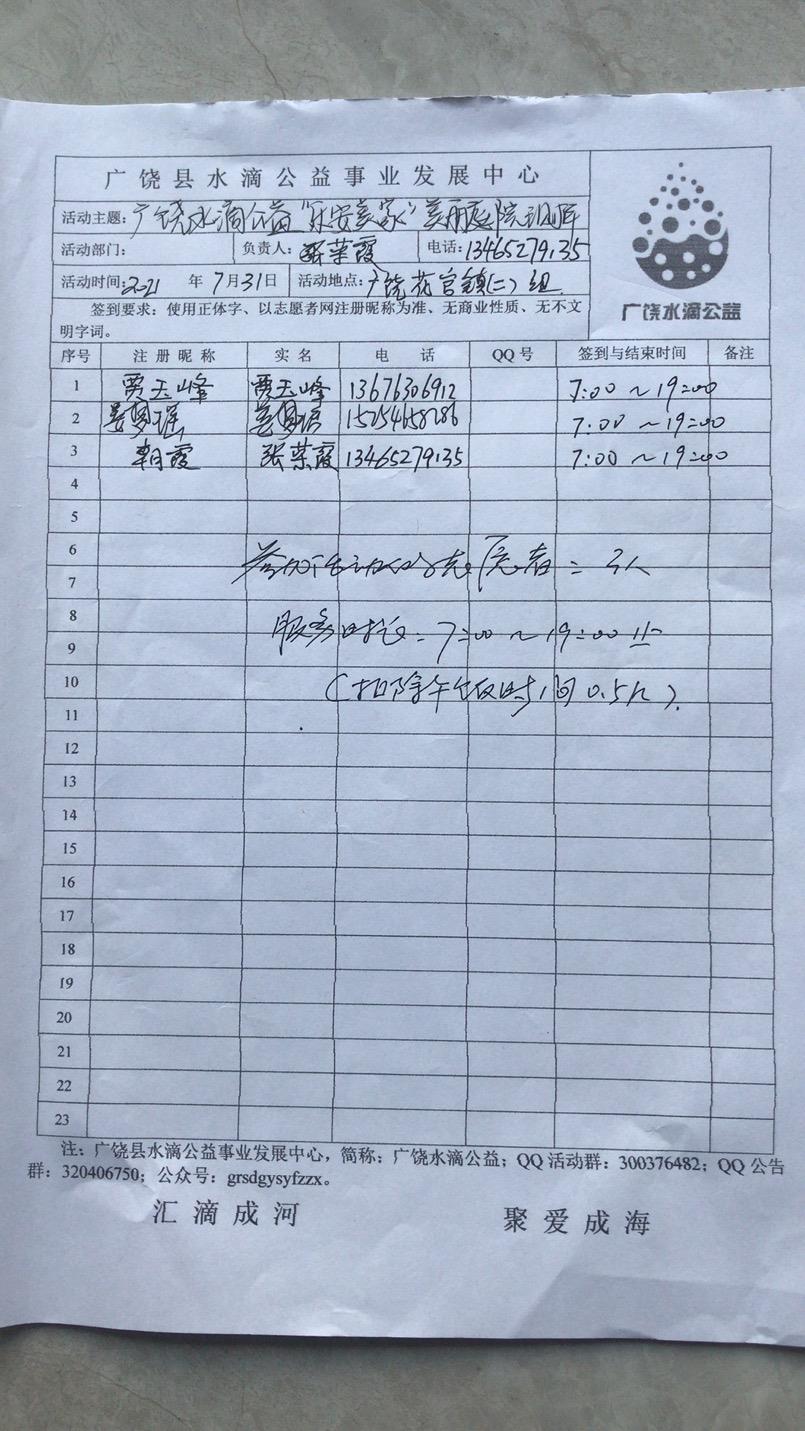 广饶县水滴公益事业发展中心
活动主题：广饶水滴公益“乐安美家”美丽庭院
活动部门： 负责人：张荣霞 电话：13465279135
活动时间：2021 年 7月31日 活动地点：广饶花官镇(二)组
签到要求：使用正体字、以志愿者网注册昵称为准、无商业性质、无不文
明字词。
广饶水滴公益
序号 注册昵称 实名 电话 QQ号 签到与结束时间 备注
1 贾玉峰 贾玉峰 13676306912 7:00 ~ 19:00
2 7:00 ~ 19:00
3 朝霞 张荣霞 13465279135 7:00 ~ 19:00
4
5
6
参加活动的志愿者：3人
7
8
服务时长：7:00 ~ 19:00
9
10
（扣除午饭时间0.5h）.
11
12
13
14
15
16
17
18
19
20
21
22
23
注：广饶县水滴公益事业发展中心，简称：广饶水滴公益；QQ活动群：300376482；QQ公告
群：320406750；公众号：grsdgysyfzzx。
汇滴成河 聚爱成海